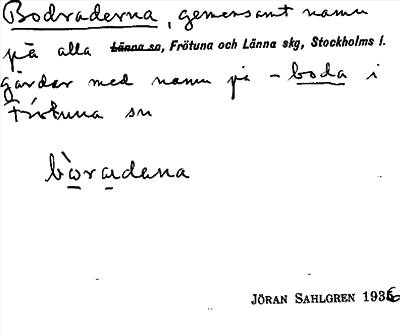 Bodraderna, gemensamt namn
på alla Länna sn, Frötuna och Länna skg, Stockholms l.
gårdar med namn på -boda i
Frötuna sn
bòradana
JÖRAN SAHLGREN 1936